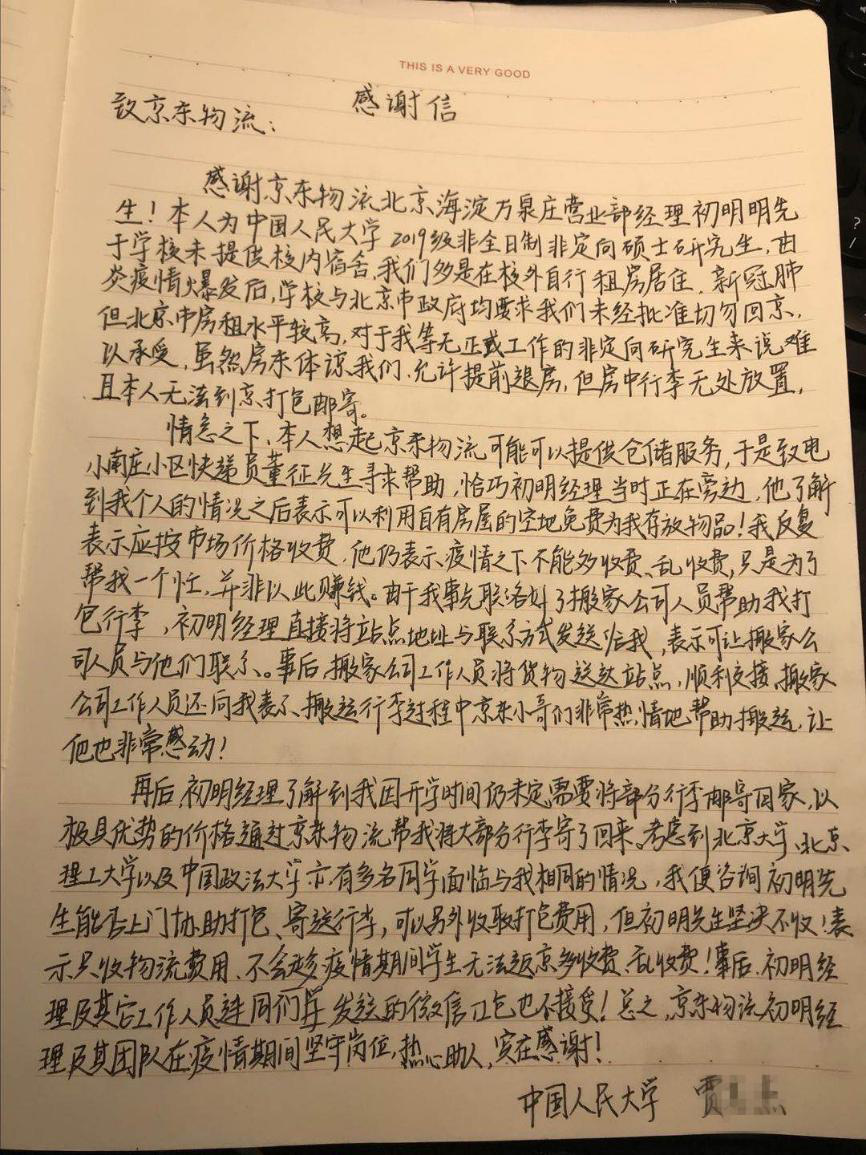 THIS IS A VERY GOOD
感谢信
致京东物流：
感谢京东物流北京海淀万泉庄营业部经理初明明先
生！本人为中国人民大学2019级非全日制非定向硕士研究生，由
于学校未提供校内宿舍，我们多是在校外自行租房居住。新冠肺
炎疫情爆发后，学校与北京市政府均要求我们未经批准切勿回京，
但北京市房租水平较高，对于我等无正式工作的非定向研究生来说难
以承受，虽然房东体谅我们，允许提前退房，但房中行李无处放置，
且本人无法到京打包邮寄。
情急之下，本人想起京东物流可能可以提供仓储服务，于是致电
小南庄小区快递员董征先生寻求帮助，恰巧初明经理当时正在旁边，他了解
到我个人的情况之后表示可以利用自有房屋的空地免费为我存放物品！我反复
表示应按市场价格收费，他仍表示疫情之下不能多收费、乱收费，只是为了
帮我一个忙，并非以此赚钱。由于我事先联络好了搬家公司人员帮助我打
包行李，初明经理直接将站点地址与联系方式发送给我，表示可让搬家公
司人员与他们联系。事后，搬家公司工作人员将货物送达站点，顺利交接，搬家
公司工作人员还向我表示，搬运行李过程中京东小哥们非常热情地帮助搬运，让
他也非常感动！
再后，初明经理了解到我因开学时间仍未定需要将部分行李邮寄回家，以
极具优势的价格通过京东物流帮我将大部分行李寄了回来。考虑到北京大学、北京
理工大学以及中国政法大学亦有多名同学面临与我相同的情况，我便咨询初明先
生能否上门协助打包、寄送行李，可以另外收取打包费用，但初明先生坚决不收！表
示只收物流费用，不会趁疫情期间学生无法返京多收费、乱收费！事后，初明经
理及其它工作人员连同学们发送的微信红包也不接受！总之，京东物流初明经
理及其团队在疫情期间坚守岗位，热心助人，实在感谢！
中国人民大学 贾